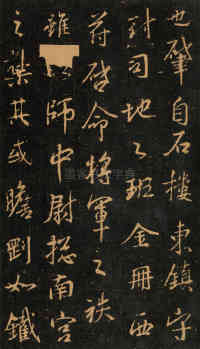 也肇自石樓東鎮守
封司地之班金冊西
符啓命將軍之袟
雖以師中尉揔南宮
之襟其或瞻劉如鐵